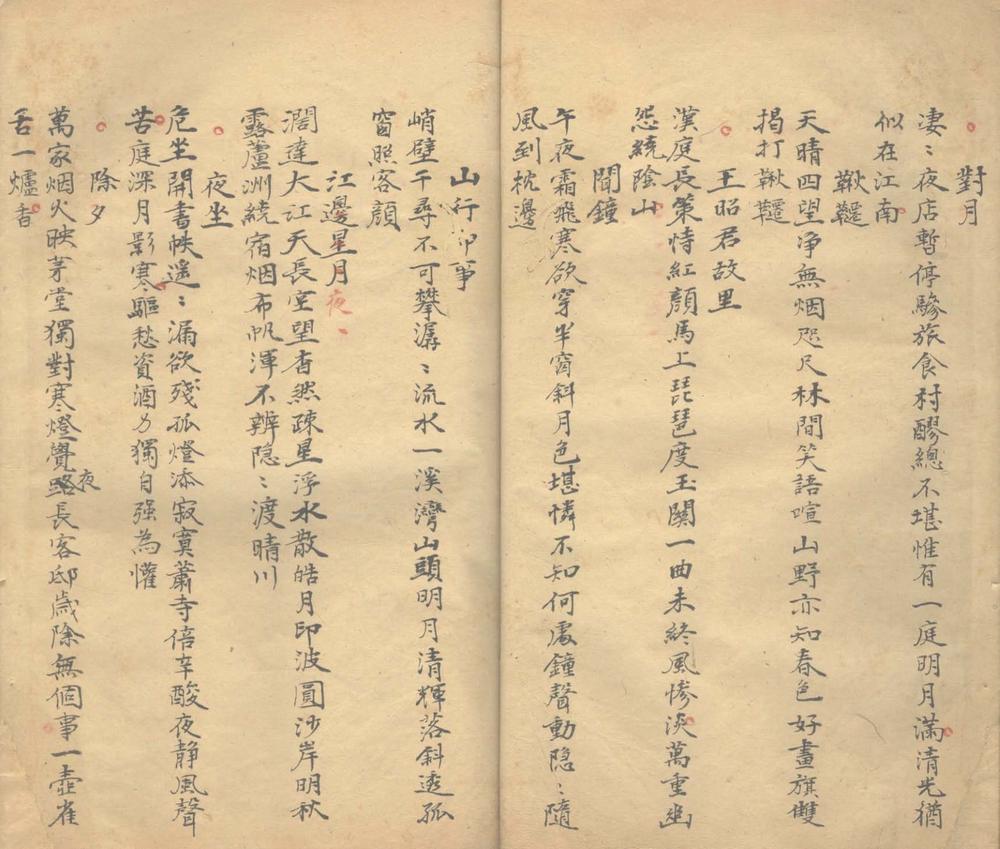 對月
凄〻夜店暫停驂旅食村醪總不堪惟有一庭明月滿清光猶
似在江南
鞦韆
天晴四望净無烟咫尺林間笑語喧山野亦知春色好畫旗雙
揭打鞦韆
王昭君故里
漢庭長策恃紅顏馬上琵琶度玉關一曲未終風慘淡萬重幽
怨繞陰山
聞鐘
午夜霜飛寒欲穿半窗斜月色堪憐不知何處鐘聲動隐〻隨
風到枕邊
山行即事
峭壁千尋不可攀潺〻流水一溪灣山頭明月清輝落斜透孤
窗照客顏
江邊星月夜〻
濶達大江天長空望杳然疎星浮水散皓月印波圓沙岸明秋
露蘆洲繞宿烟布帆渾不辨隐〻渡晴川
夜坐
危坐開書帙遥〻漏欲殘孤燈添寂寞蕭寺倍辛酸夜静風聲
苦庭深月影寒驅愁資酒力獨自强為懽
除夕
萬家烟火映茅堂獨對寒燈覺夜長客邸歲除無個事一壺雀
舌一爐香